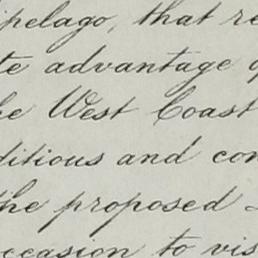 ipelago, that re
te advantage o
he West Coast
ditious and con
the proposed
ccasion to vis